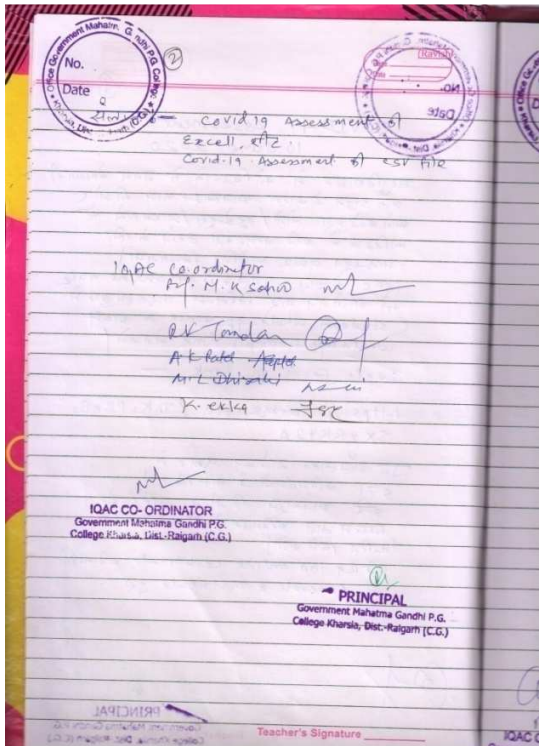 Office Government Mahatma Gandhi P.G. College
Kharsia, Dist.
(C.G.)
No.
Date
②
Covid 19 Assessment of
Excell,
Covid-19 Assessment of csv file
IQAC Co.ordinator
Prof. M. K Sahu
RK Tondan
A K Patel
M. L Dhirhi
K. ekka
IQAC CO- ORDINATOR
Government Mahatma Gandhi P.G.
College Kharsia, Dist.-Raigarh (C.G.)
PRINCIPAL
Government Mahatma Gandhi P.G.
College Kharsia, Dist.-Raigarh (C.G.)
Teacher's Signature
IQAC C